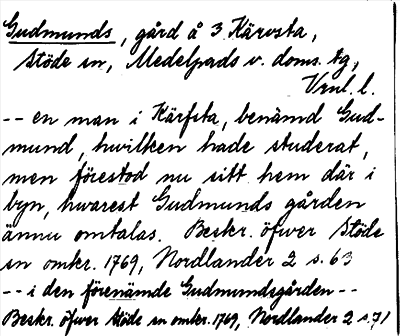 Gudmunds, gård å 3 Kärvsta,
Stöde sn, Medelpads v. doms. tg,
Vnl. l.
-- en man i Kärfsta, benämd Gud-
mund, hwilken hade studerat,
men förestod nu sitt hem där i
byn, hwarest Gudmunds gården
ännu omtalas. Beskr. öfwer Stöde
sn omkr. 1769, Nordlander 2 s. 63
-- i den förenämde Gudmundsgården --
Beskr. öfwer Stöde sn omkr. 1769, Nordlander 2 s. 71